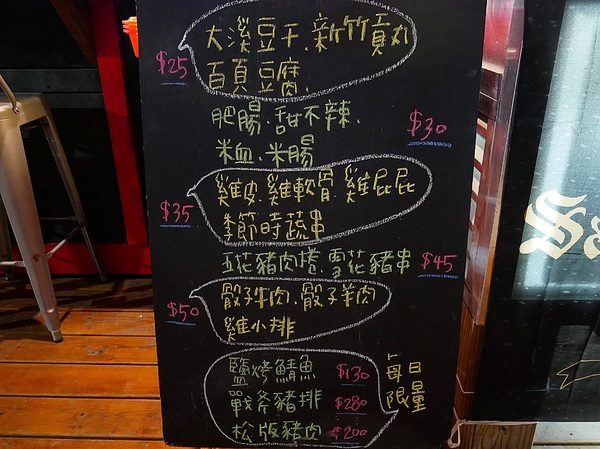 大溪豆干.新竹貢丸
$25
百頁豆腐.
肥腸.甜不辣.
$30
米血.米腸
雞皮.雞軟骨.雞屁屁
$35
季節時蔬串
五花豬肉捲.雪花豬串 $45
骰子牛肉.骰子羊肉
$50
雞小排
鹽烤鯖魚 $130
戰斧豬排 $280
松版豬肉 $200
每日
限量